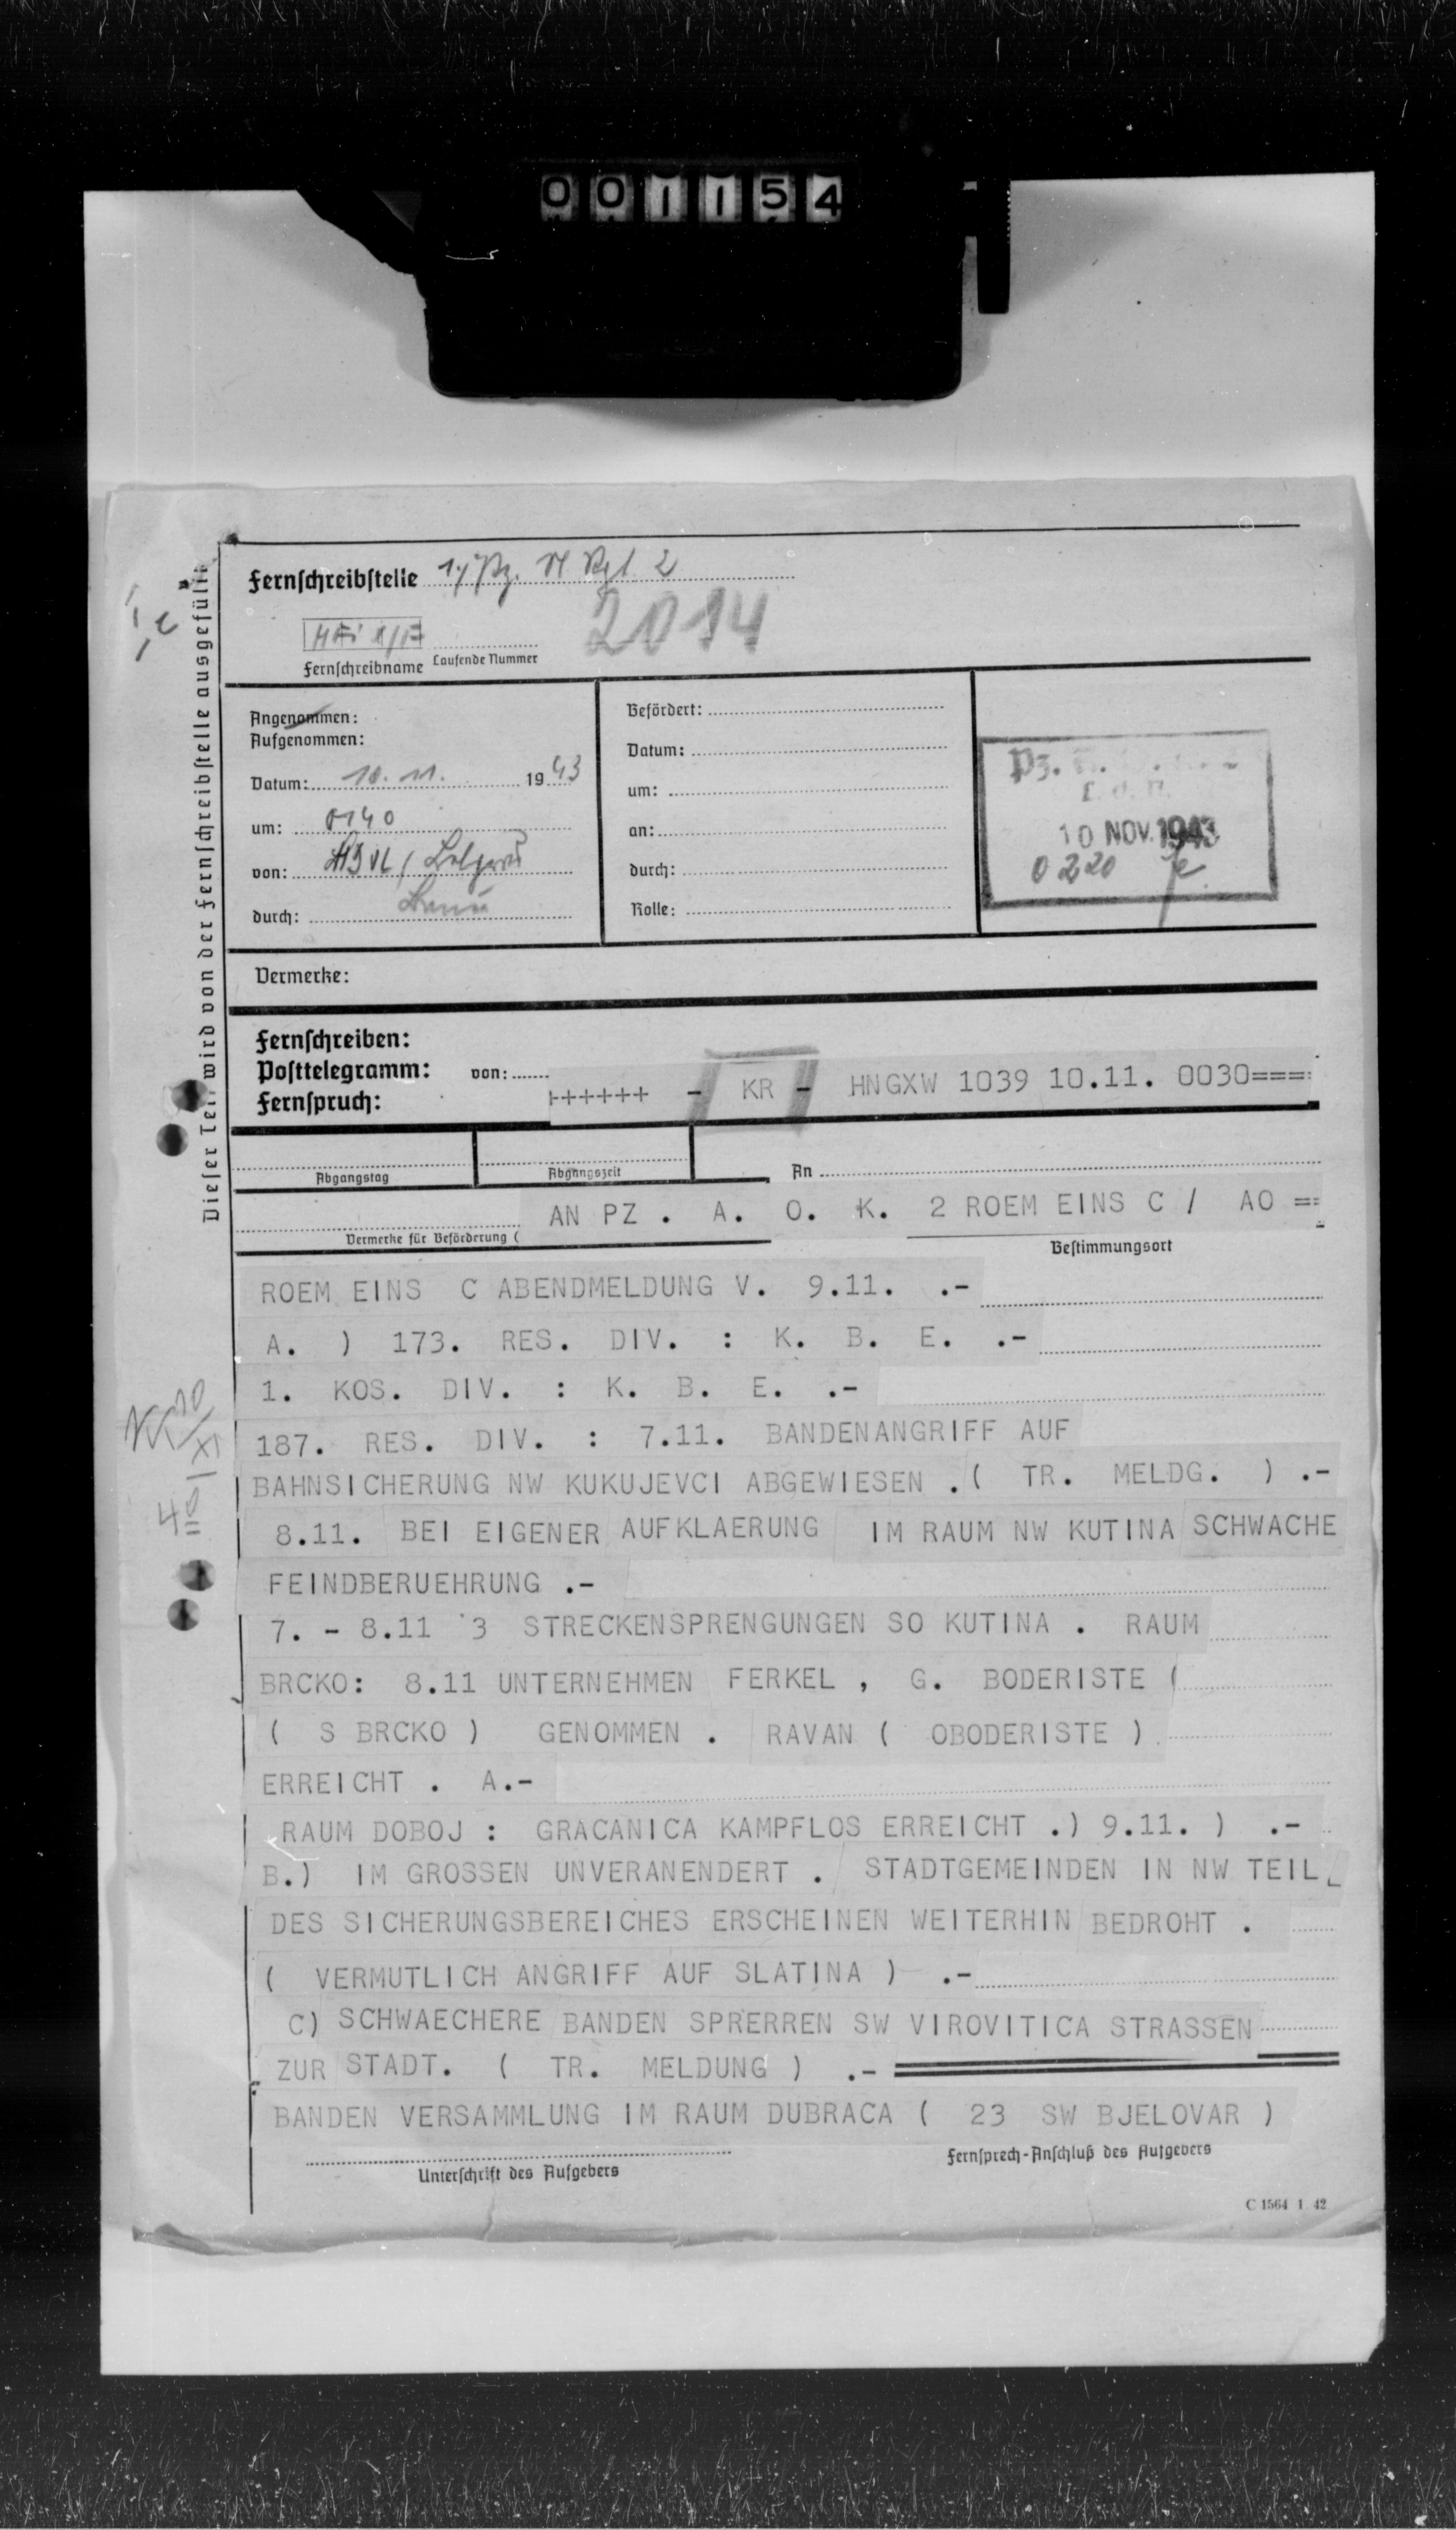 001154
Fernschreibstelle 1./Pz. N Rgt 2
2014
Fernschreibname Laufende Nummer
Dieser Teil wird von der Fernschreibstelle ausgefüllt
Angenommen:
Aufgenommen:
Datum: 10.11. 1943
um: 0140
von:
durch:
Befördert:
Datum:
um:
an:
durch:
Rolle:
Pz.
10 NOV. 1943
0220
Vermerke:
Fernschreiben:
Posttelegramm: von:
Fernspruch:
++++++ - KR - HNGXW 1039 10.11. 0030====
Abgangstag Abgangszeit An
AN PZ . A. O. K. 2 ROEM EINS C / AO ==
Vermerke für Beförderung ( Bestimmungsort
ROEM EINS C ABENDMELDUNG V. 9.11. .-
A. ) 173. RES. DIV. : K. B. E. .-
1. KOS. DIV. : K. B. E. .-
187. RES. DIV. : 7.11. BANDENANGRIFF AUF
BAHNSICHERUNG NW KUKUJEVCI ABGEWIESEN .( TR. MELDG. ) .-
8.11. BEI EIGENER AUFKLAERUNG IM RAUM NW KUTINA SCHWACHE
FEINDBERUEHRUNG .-
7. - 8.11 3 STRECKENSPRENGUNGEN SO KUTINA . RAUM
BRCKO: 8.11 UNTERNEHMEN FERKEL , G. BODERISTE (
( S BRCKO ) GENOMMEN . RAVAN ( OBODERISTE )
ERREICHT . A.-
RAUM DOBOJ : GRACANICA KAMPFLOS ERREICHT .) 9.11. ) .-
B.) IM GROSSEN UNVERANENDERT . STADTGEMEINDEN IN NW TEIL
DES SICHERUNGSBEREICHES ERSCHEINEN WEITERHIN BEDROHT .
( VERMUTLICH ANGRIFF AUF SLATINA ) .-
C) SCHWAECHERE BANDEN SPRERREN SW VIROVITICA STRASSEN
ZUR STADT. ( TR. MELDUNG ) .-
BANDEN VERSAMMLUNG IM RAUM DUBRACA ( 23 SW BJELOVAR )
Unterschrift des Aufgebers Fernsprech-Anschluß des Aufgebers
C 1564 1 42